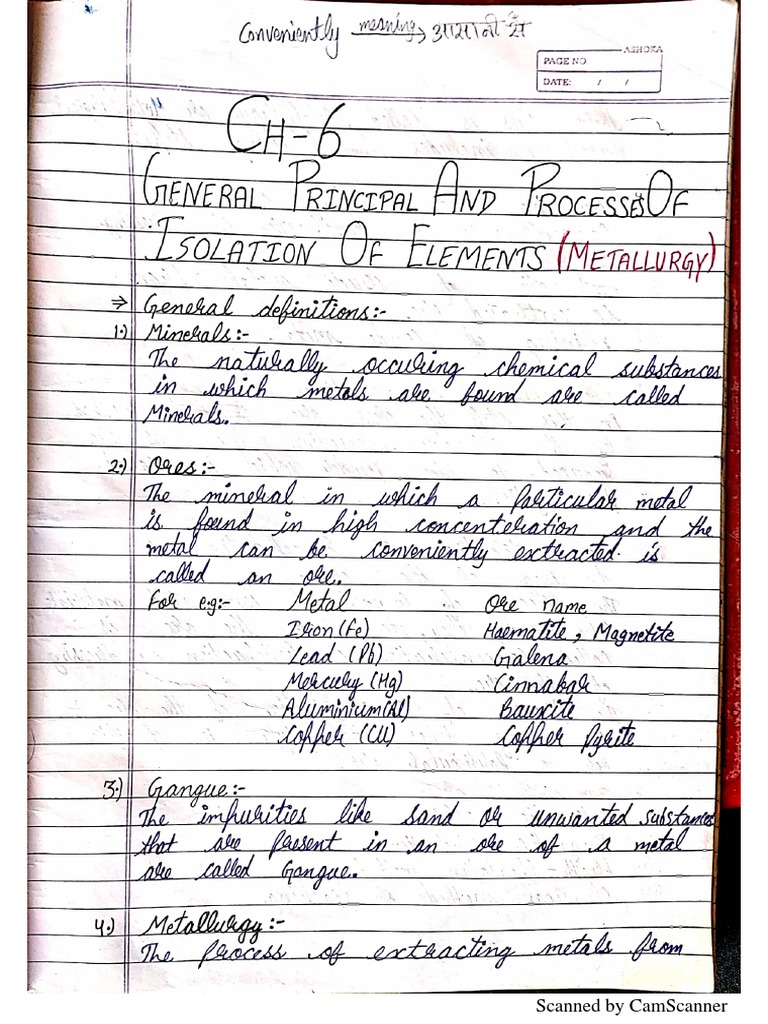 Conveniently meaning→ आसानी से
ASHOKA
PAGE NO
DATE: / /
CH-6
GENERAL PRINCIPAL AND PROCESSES OF
ISOLATION OF ELEMENTS (METALLURGY)
⇒ General definitions:-
1.) Minerals:-
The naturally occuring chemical substances
in which metals are found are called
Minerals.
2.) Ores:-
The mineral in which a particular metal
is found in high concenteration and the
metal can be conveniently extracted is
called an ore.
For eg:- Metal Ore name
Iron (Fe) Haematite, Magnetite
Lead (Pb) Galena
Mercury (Hg) Cinnabar
Aluminium (Al) Bauxite
Copper (CU) Copper Pyrite
3.) Gangue:-
The impurities like sand or unwanted substances
that are present in an ore of a metal
are called Gangue.
4.) Metallurgy:-
The process of extracting metals from
Scanned by CamScanner